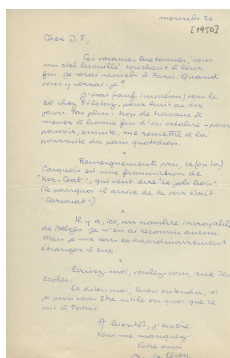 mercredi 26
[1950]
Cher J.P.,
Ces vacances bretonnes, sous
un ciel brouillé, touchent à leur
fin. Je serai samedi à Paris. Quand
vous y verrai-je ?
J'irai, sauf imprévu, vers le
20 chez , pour huit ou dix
jours. Pas plus : trop de travaux à
mener à bonne fin d'ici octobre - pour
pouvoir, ensuite, me remettre à la
poursuite du pain quotidien.
*
Renseignements pris, le (ou la)
Carquois est une francisation de
"Ker-Coat", qui veut dire "le joli bois"
(le pourquoi il arrive de le voir écrit
"Carcouat")
*
Il y a, ici, un nombre incroyable
de Belges. Je n'en ai reconnu aucun.
Mais je me sens extraordinairement
étranger à eux.
*
Ecrivez-moi, voulez-vous, rue des
Ecoles.
Et dites-moi, bien entendu, si
je puis vous être utile en quoi que ce
soit à Paris.
A bientôt, j'espère.
Vous me manquez.
Votre ami